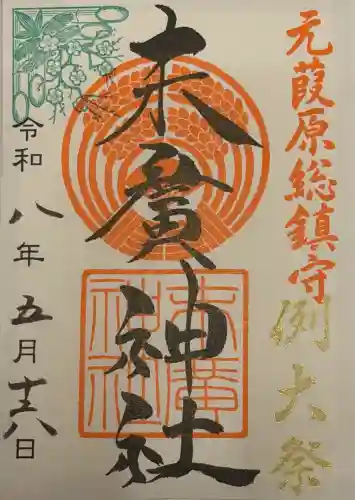 元葭原総鎮守
例大祭
末廣神社
末廣神社
令和八年五月十六日